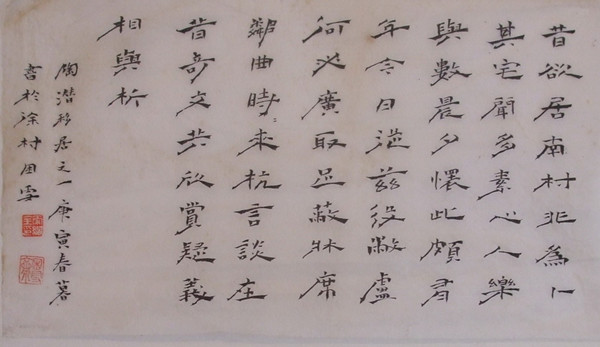 昔欲居南村非為卜
其宅聞多素心人樂
與數晨夕懷此頗有
年今日從茲役敝廬
何必廣取足蔽牀席
鄰曲時〻來抗言談在
昔奇文共欣賞疑義
相與析
陶潛移居之一庚寅春暮
書於徐村